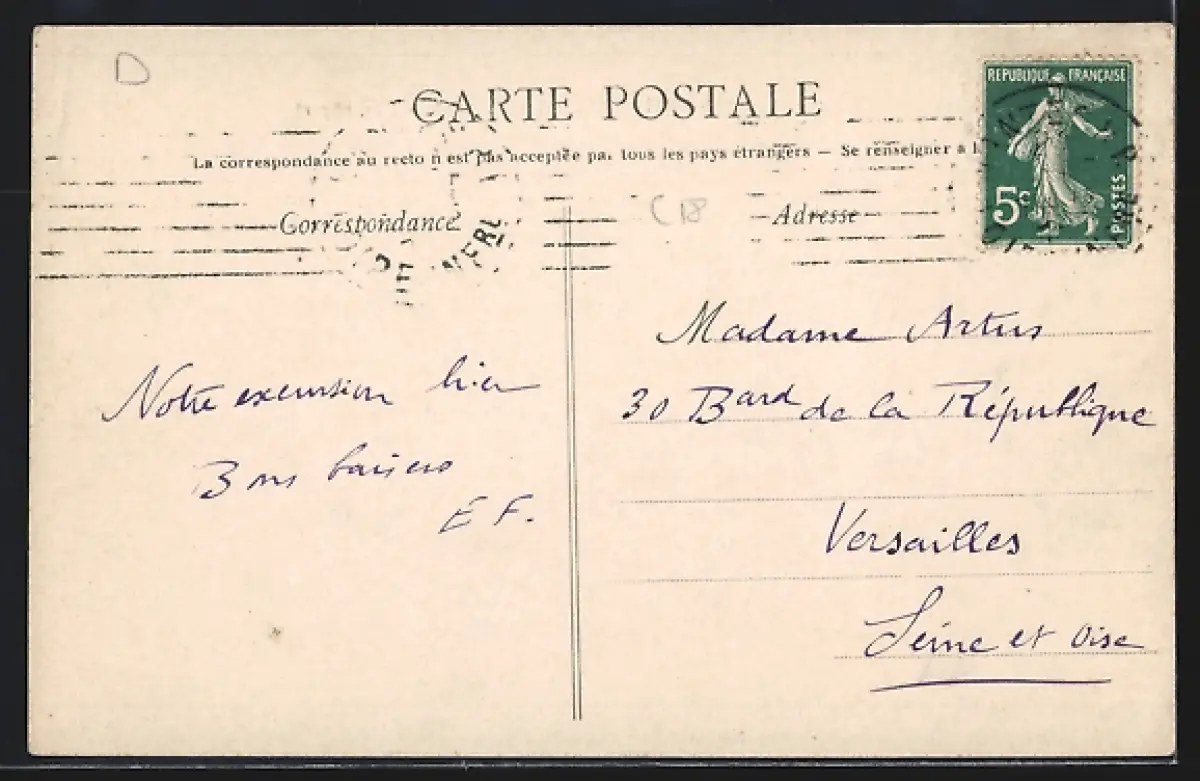 D
CARTE POSTALE
La correspondance au recto n'est pas acceptée par tous les pays étrangers — Se renseigner à l
REPUBLIQUE FRANÇAISE
5c
POSTES
C18
Correspondance
Adresse
Madame Artus
30 Bard de la République
Versailles
Seine et Oise
Notre excursion hier
Bons baisers
E F.